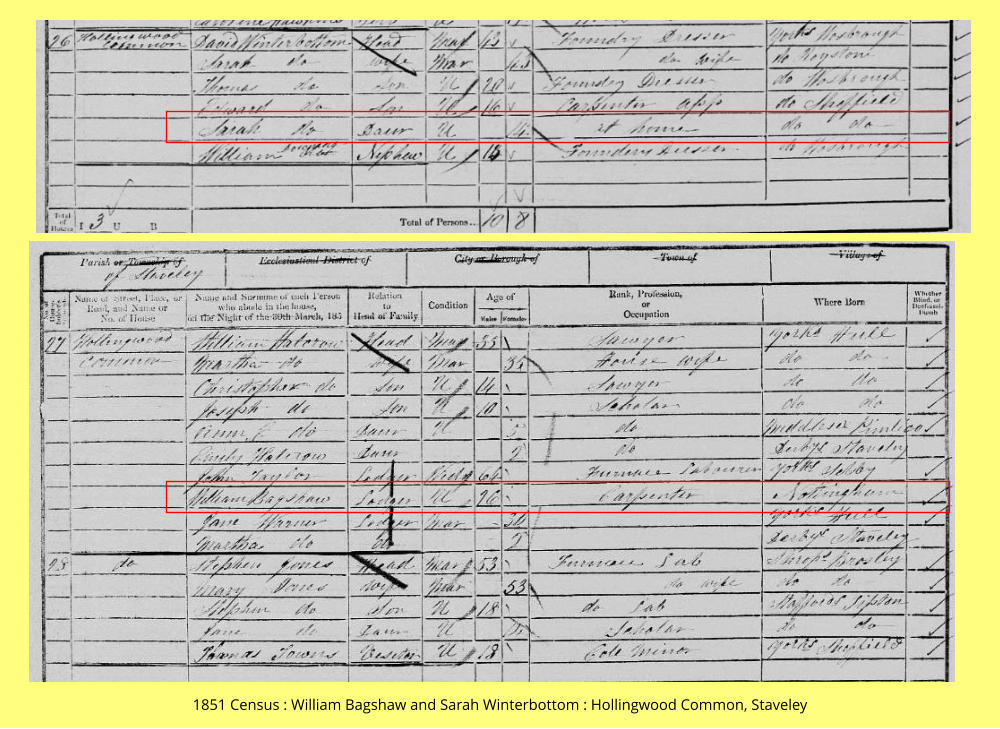 26 Hollingwood Common David Winterbottom Head Mar 43 Foundry Dresser Yorks Wosbrough
Sarah do Wife Mar 43 do Wife do Royston
Thomas do Son U 20 Foundry Dresser do Wosbrough
Edward do Son U 16 Carpenter App do Sheffield
Sarah do Daur U 14 at home do do
William Nephew U 18 Foundry Dresser do Wosbrough
Total of Houses I 3 U B Total of Persons... 10 8
Parish or Township of Ecclesiastical District of City or Borough of Town of Village of
of Staveley
Name of Street, Place, or Road, and Name or No. of House
Name and Surname of each Person who abode in the house, on the Night of the 30th March, 185
Relation to Head of Family
Condition
Age of Males Females
Rank, Profession, or Occupation
Where Born
Whether Blind, or Deaf-and-Dumb
27 Hollingwood Common William Halcrow Head Mar 35 Sawyer Yorks Hull
Martha do Wife Mar 35 House wife do do
Christopher do Son U 14 Sawyer do do
Joseph do Son U 10 Scholar do do
do Daur U 5 do Middlesex Pimlico
Emily Halcrow Daur 2 do Derbys Staveley
John Taylor Lodger Widr 64 Furnace Labourer Yorks Selby
William Bagshaw Lodger U 26 Carpenter Nottingham
Jane Warner Lodger Mar 30 Yorks Hull
Martha do do 2 Derbys Staveley
28 do Stephen Jones Head Mar 53 Furnace Lab Shrops Brosley
Mary Jones Wife Mar 53 do wife do do
Stephen do Son U 18 do Lab Staffords Tipton
Jane do Daur U Scholar do do
Thomas Towns Visitor U 18 Cole Minor Yorks Sheffield
1851 Census : William Bagshaw and Sarah Winterbottom : Hollingwood Common, Staveley